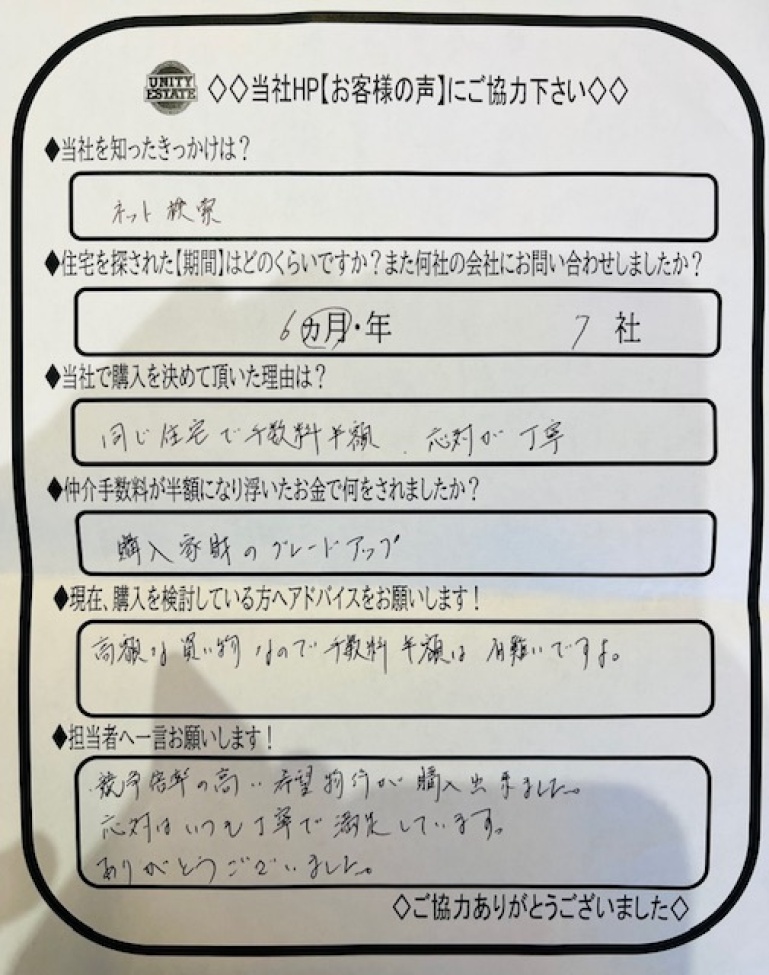 UNITY
ESTATE
◇◇当社HP【お客様の声】にご協力下さい◇◇
◆当社を知ったきっかけは？
ネット検索
◆住宅を探された【期間】はどのくらいですか？また何社の会社にお問い合わせしましたか？
6カ月・年 7社
◆当社で購入を決めて頂いた理由は？
同じ住宅で手数料半額、応対が丁寧
◆仲介手数料が半額になり浮いたお金で何をされましたか？
購入家財のグレードアップ
◆現在、購入を検討している方へアドバイスをお願いします！
高額な買い物なので手数料半額は有難いですよ。
◆担当者へ一言お願いします！
競争倍率の高い希望物件が購入出来ました。
応対はいつも丁寧で満足しています。
ありがとうございました。
◇ご協力ありがとうございました◇